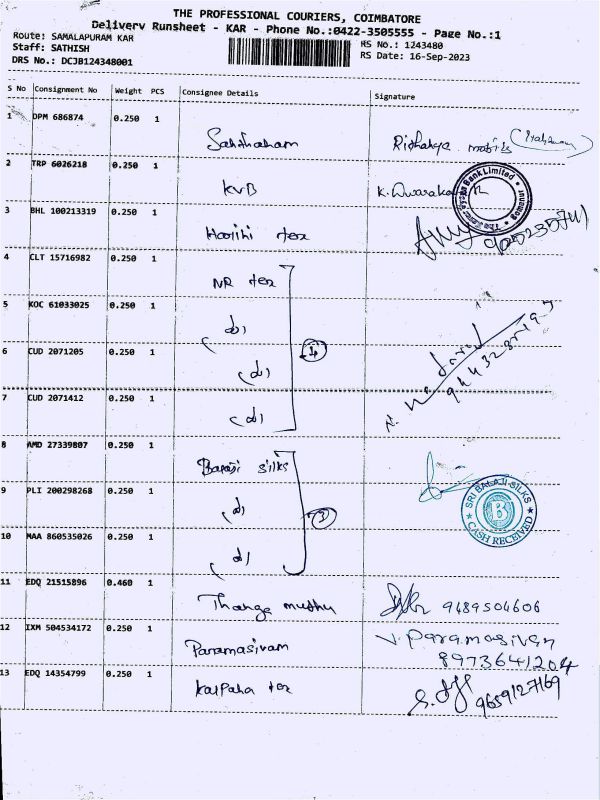 THE PROFESSIONAL COURIERS, COIMBATORE
Delivery Runsheet - KAR - Phone No.:0422-3505555 - Page No.:1
Route: SAMALAPURAM KAR
Staff: SATHISH
DRS No.: DCJB124348001
RS No.: 1243480
RS Date: 16-Sep-2023
S No Consignment No Weight PCS Consignee Details Signature
1 DPM 686874 0.250 1
2 TRP 6026218 0.250 1 KVB K. Dwaraka
Bank Limited
3 BHL 100213319 0.250 1 tex
4 CLT 15716982 0.250 1 NR tex
5 KOC 61033025 0.250 1 (d)
6 CUD 2071205 0.250 1 (d) 4
7 CUD 2071412 0.250 1 (d)
8 AMD 27339807 0.250 1 silks
9 PLI 200298268 0.250 1 (d) 3
SRI BALAJI SILKS
B
CASH RECEIVED
10 MAA 860535026 0.250 1 (d)
11 EDQ 21515896 0.460 1 Thanga muthu 9489504606
12 IXM 504534172 0.250 1 Paramasivam V. Paramasivan
8973641204
13 EDQ 14354799 0.250 1 Kalpana tex 9659127169